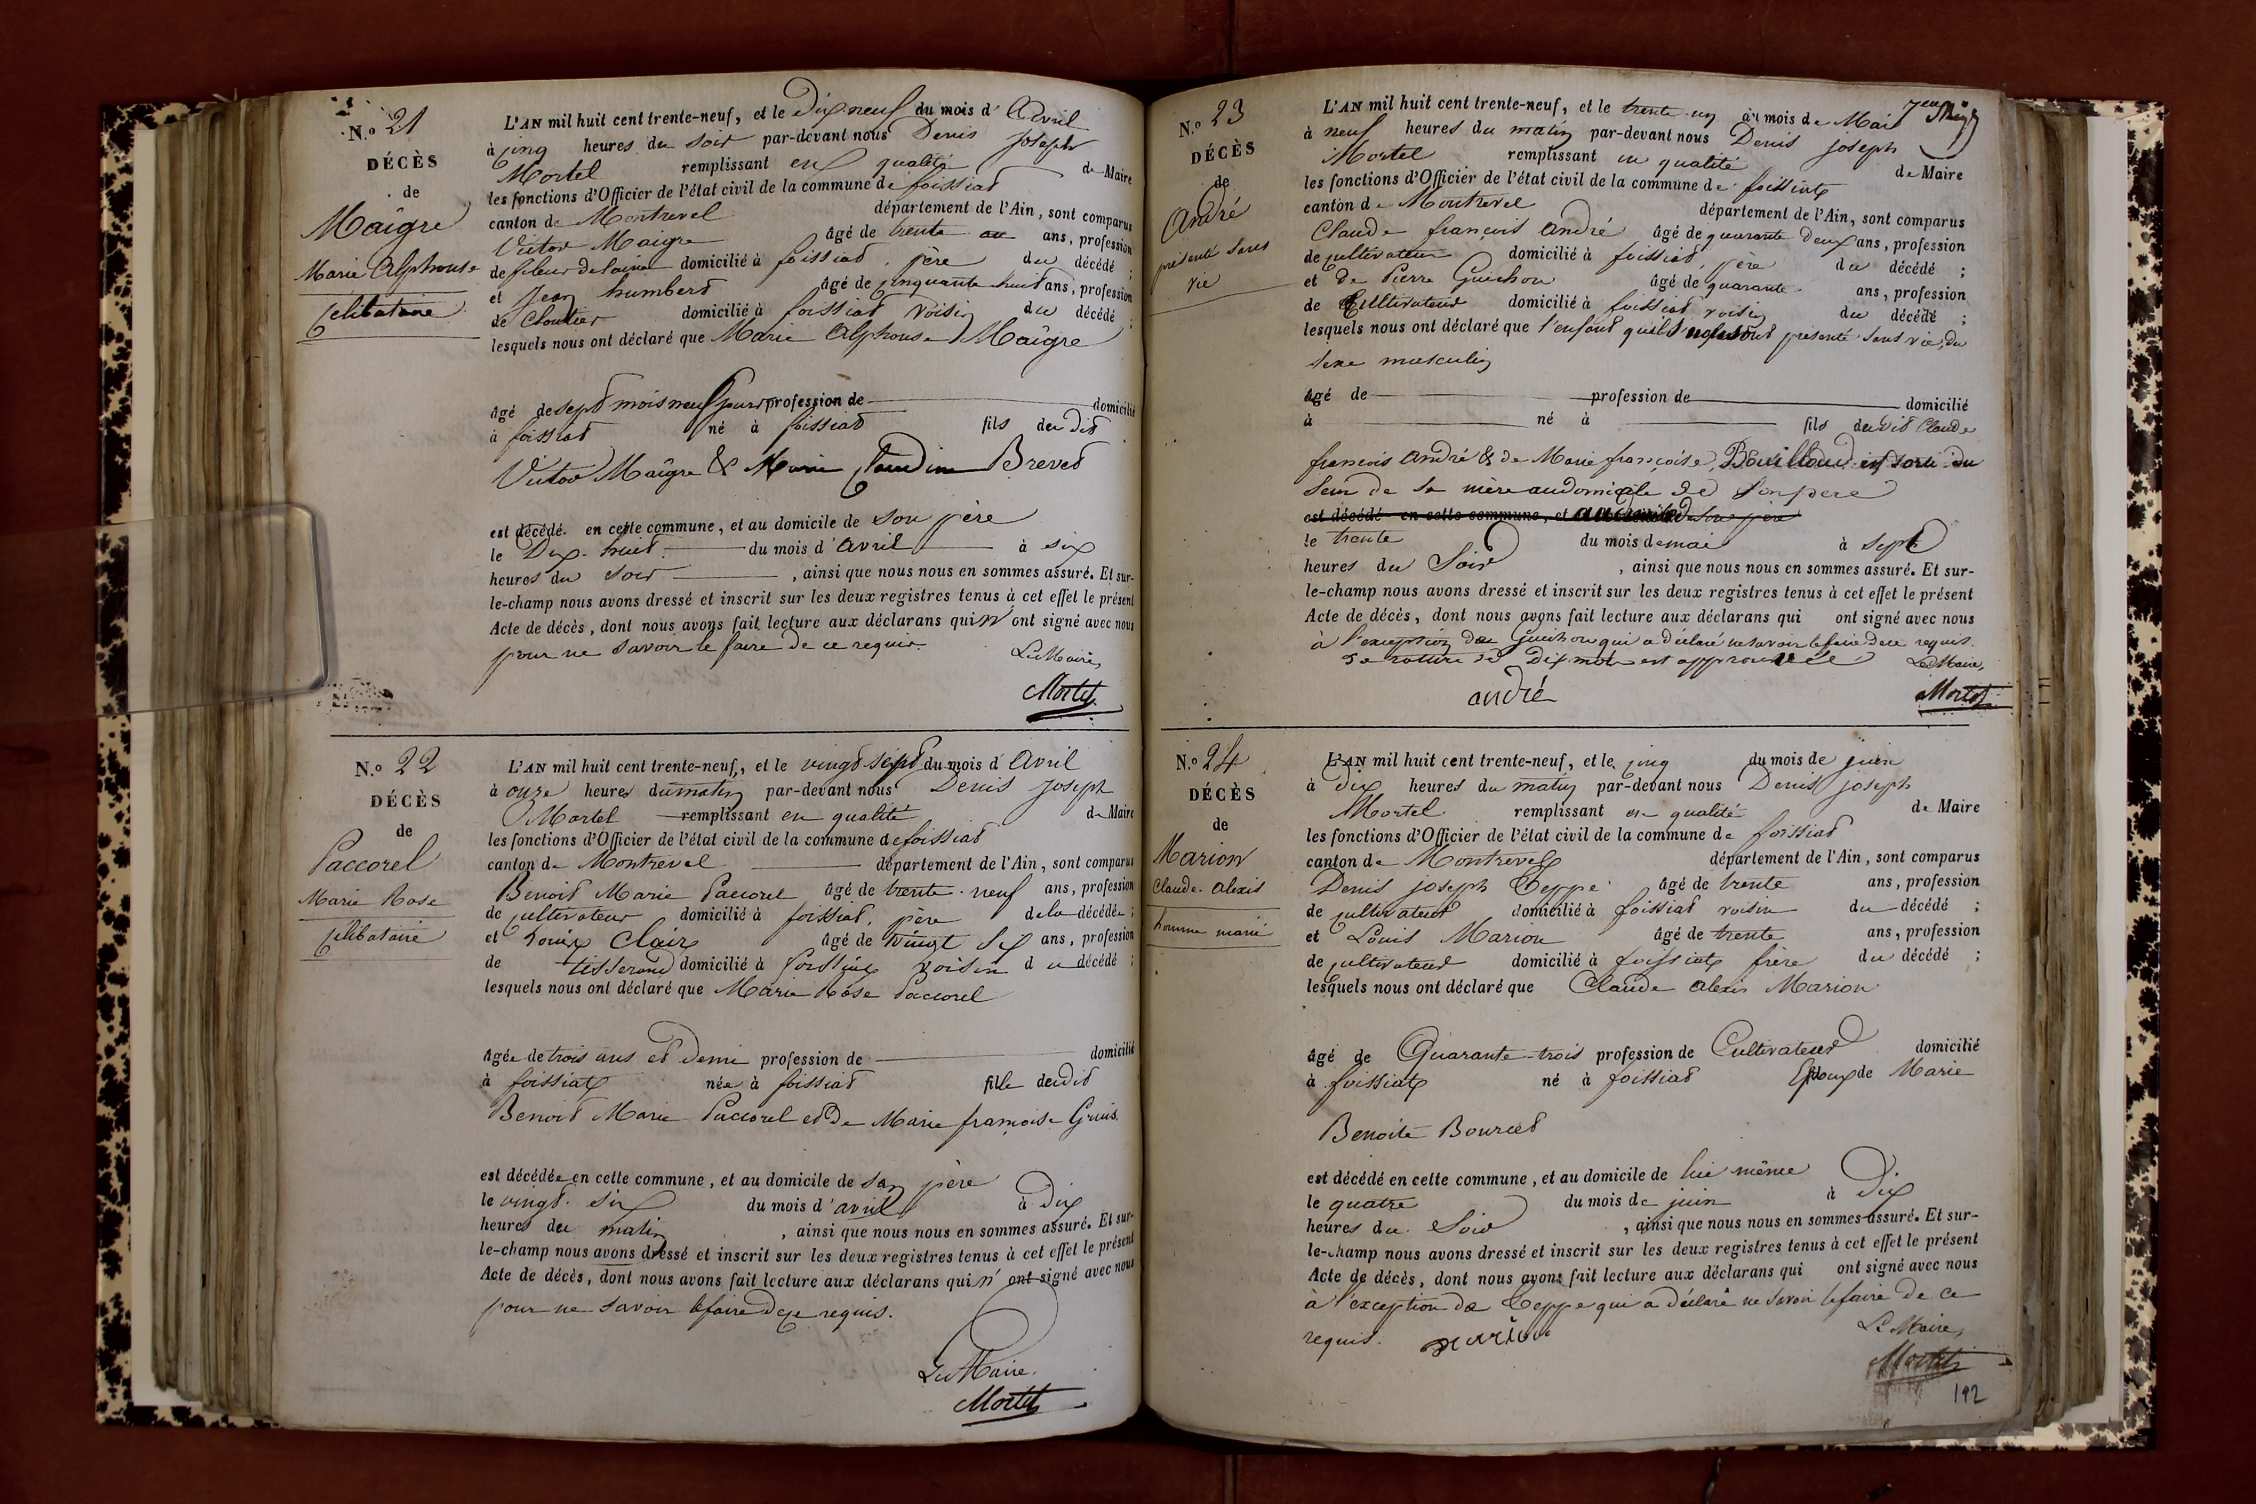 N.o 21
DÉCÈS
de
Maigre
Marie Alphonse
celibataire
L'AN mil huit cent trente-neuf, et le Dix neuf du mois d'Avril
à cinq heures du soir par-devant nous Denis joseph
Mortel remplissant en qualité de Maire
les fonctions d'Officier de l'état civil de la commune de foissiat
canton de Montrevel département de l'Ain, sont comparus
Victor Maigre âgé de trente ans, profession
de fileur de laine domicilié à foissiat, père du décédé ;
et Jean humbert âgé de cinquante huit ans, profession
de Cloutier domicilié à foissiat voisin du décédé ;
lesquels nous ont déclaré que Marie Alphonse Maigre
âgé de sept mois neuf jours profession de domicilié
à foissiat né à foissiat fils du dit
Victor Maigre & Marie Claudine Brevet
est décédé en cette commune, et au domicile de son père
le Dix-huit du mois d'avril à six
heures du soir, ainsi que nous nous en sommes assuré. Et sur-
le-champ nous avons dressé et inscrit sur les deux registres tenus à cet effet le présent
Acte de décès, dont nous avons fait lecture aux déclarans qui n'ont signé avec nous
pour ne savoir le faire de ce requis.
Le Maire,
Mortel
N.o 22
DÉCÈS
de
Paccorel
Marie Rose
celibataire
L'AN mil huit cent trente-neuf, et le vingt sept du mois d'Avril
à onze heures du matin par-devant nous Denis joseph
Mortel remplissant en qualité de Maire
les fonctions d'Officier de l'état civil de la commune de foissiat
canton de Montrevel département de l'Ain, sont comparus
Benoit Marie Paccorel âgé de trente-neuf ans, profession
de cultivateur domicilié à foissiat, père de la décédée ;
et Louis Clair âgé de vingt six ans, profession
de tisserand domicilié à foissiat voisin du décédé ;
lesquels nous ont déclaré que Marie Rose Paccorel
âgée de trois ans et Demi profession de domicilié
à foissiat née à foissiat fille du dit
Benoit Marie Paccorel et De Marie françoise Gruis.
est décédée en cette commune, et au domicile de son père
le vingt-six du mois d'avril à Dix
heures du matin, ainsi que nous nous en sommes assuré. Et sur-
le-champ nous avons dressé et inscrit sur les deux registres tenus à cet effet le présent
Acte de décès, dont nous avons fait lecture aux déclarans qui n'ont signé avec nous
pour ne savoir le faire de ce requis.
Le Maire.
Mortel
N.o 23
DÉCÈS
de
André
présenté sans
vie
L'AN mil huit cent trente-neuf, et le trente un du mois de Mai
à neuf heures du matin par-devant nous Denis joseph
Mortel remplissant en qualité de Maire
les fonctions d'Officier de l'état civil de la commune de foissiat
canton de Montrevel département de l'Ain, sont comparus
Claude françois André âgé de quarante Deux ans, profession
de cultivateur domicilié à foissiat, père du décédé ;
et de Pierre Guichon âgé de quarante ans, profession
de Cultivateur domicilié à foissiat voisin du décédé ;
lesquels nous ont déclaré que l'enfant qu'ils nous ont présenté sans vie, du
sexe masculin
âgé de profession de domicilié
à né à fils du dit Claude
françois André & de Marie françoise Bouilloud est sorti du
sein de sa mère au domicile de son père
est décédé en cette commune, et au domicile de son père
le trente du mois de mai à sept
heures du Soir, ainsi que nous nous en sommes assuré. Et sur-
le-champ nous avons dressé et inscrit sur les deux registres tenus à cet effet le présent
Acte de décès, dont nous avons fait lecture aux déclarans qui ont signé avec nous
à l'exception du Guichon qui a déclaré ne savoir le faire de ce requis.
La rature de Dix mots est approuvée
Le Maire,
andré
Mortel
N.o 24
DÉCÈS
de
Marion
Claude-alexis
homme marié
L'AN mil huit cent trente-neuf, et le cinq du mois de juin
à Dix heures du matin par-devant nous Denis joseph
Mortel remplissant en qualité de Maire
les fonctions d'Officier de l'état civil de la commune de foissiat
canton de Montrevel département de l'Ain, sont comparus
Denis joseph Ceppe âgé de trente ans, profession
de cultivateur domicilié à foissiat voisin du décédé ;
et Louis Marion âgé de trente ans, profession
de cultivateur domicilié à foissiat frère du décédé ;
lesquels nous ont déclaré que Claude alexis Marion
âgé de Quarante-trois profession de Cultivateur domicilié
à foissiat né à foissiat Epoux de Marie
Benoite Bourcet
est décédé en cette commune, et au domicile de lui même
le quatre du mois de juin à Dix
heures du Soir, ainsi que nous nous en sommes assuré. Et sur-
le-champ nous avons dressé et inscrit sur les deux registres tenus à cet effet le présent
Acte de décès, dont nous avons fait lecture aux déclarans qui ont signé avec nous
à l'exception de Ceppe qui a déclaré ne savoir le faire de ce
requis.
marion
Le Maire,
Mortel
192